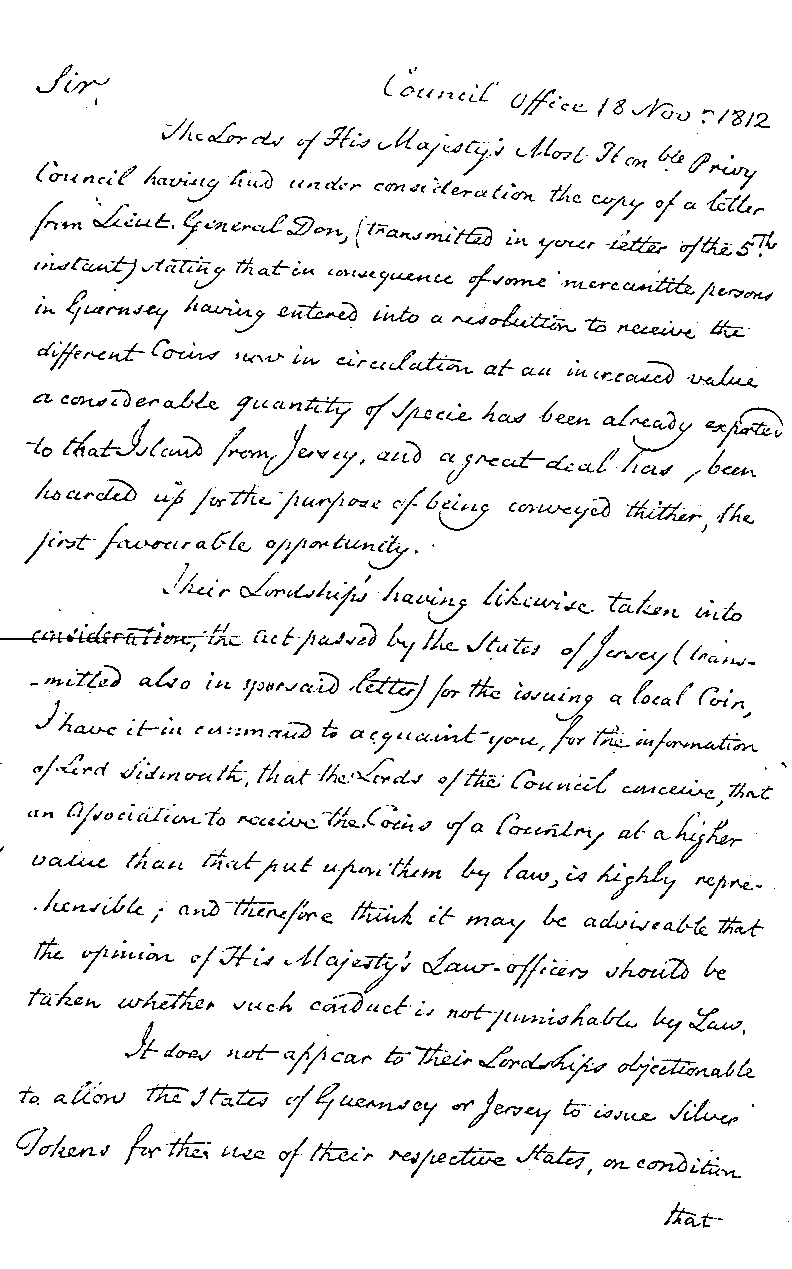 Sir, Council Office 18 Novr. 1812
The Lords of His Majesty's Most Honble Privy
Council having had under consideration the copy of a letter
from Lieut. General Don, (transmitted in your letter of the 5th.
instant) stating that in consequence of some mercantile persons
in Guernsey having entered into a resolution to receive the
different Coins now in circulation at an increased value
a considerable quantity of Specie has been already exported
to that Island from Jersey, and a great deal has, been
hoarded up for the purpose of being conveyed thither, the
first favourable opportunity.
Their Lordships having likewise taken into
consideration, the act passed by the States of Jersey (trans-
-mitted also in yr said letter) for the issuing a local Coin,
I have it in command to acquaint you, for the information
of Lord Sidmouth, that the Lords of the Council conceive, that
an Association to receive the Coins of a Country at a higher
value than that put upon them by law, is highly repre-
-hensible; and therefore think it may be adviseable that
the opinion of His Majesty's Law-officers should be
taken whether such conduct is not punishable by Law.
It does not appear to their Lordships objectionable
to allow the States of Guernsey or Jersey to issue Silver
Tokens for the use of their respective States, on condition
that